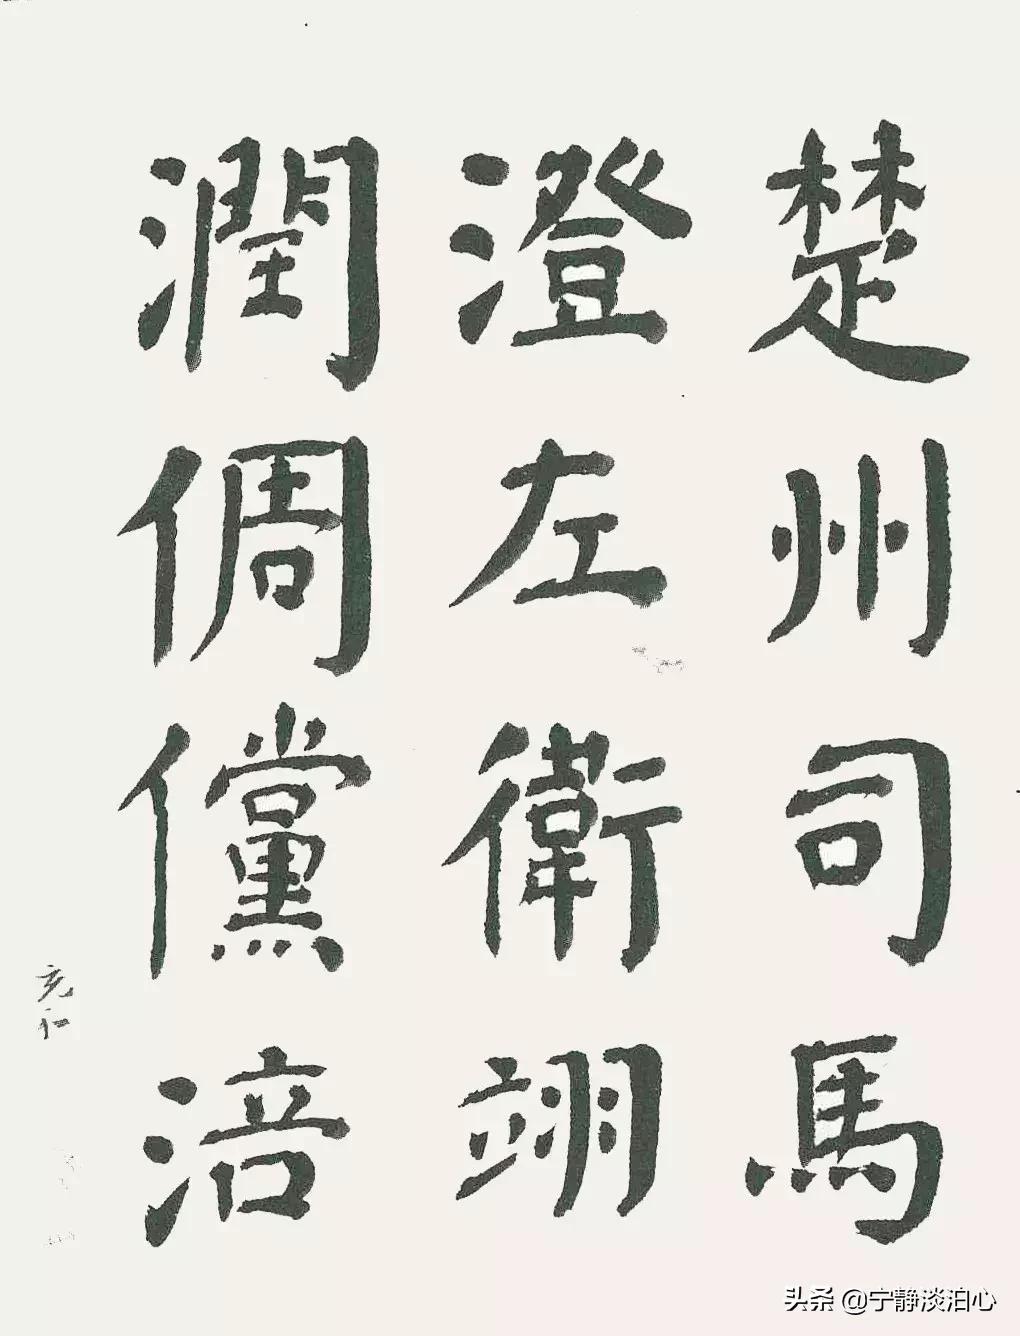 楚州司馬
澄左衛翊
潤倜儻涪
充和
头条 @宁静淡泊心